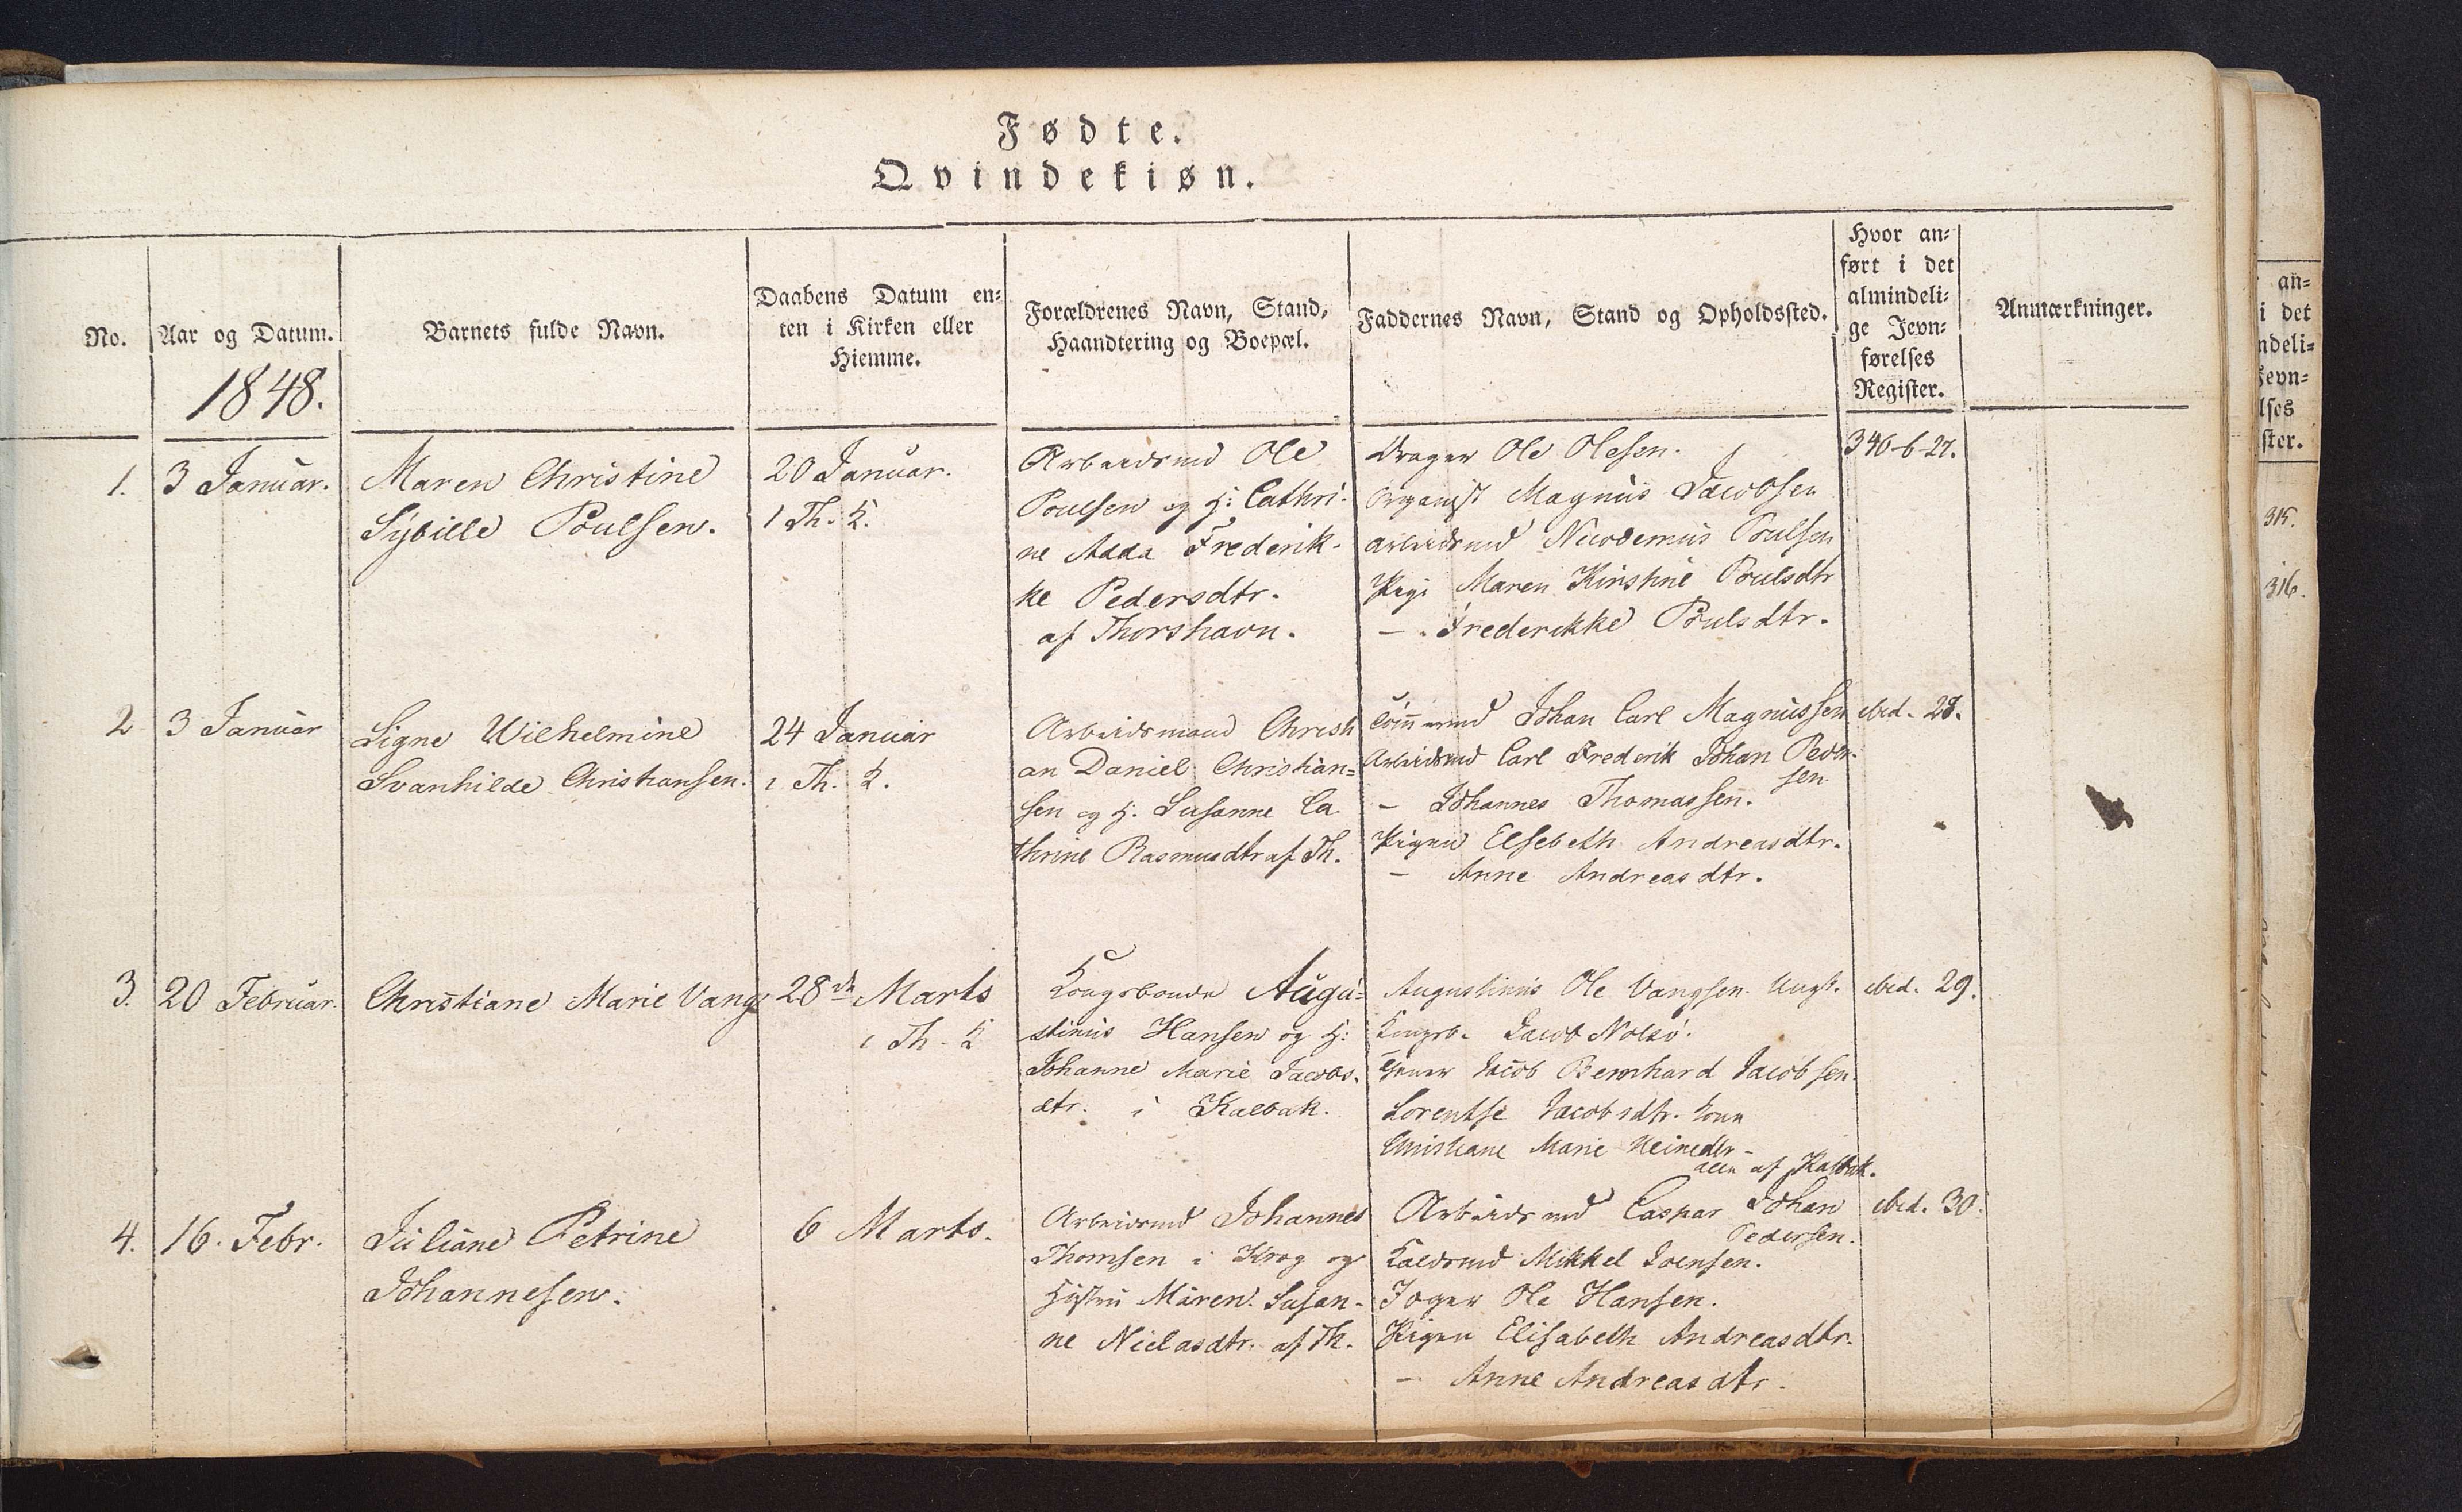 Fødte.
Qvindekiøn.
No.
Aar og Datum.
1848.
Barnets fulde Navn.
Daabens Datum en=
ten i Kirken eller
Hiemme.
Forældrenes Navn, Stand,
Haandtering og Boepæl.
Faddernes Navn, Stand og Opholdssted.
Hvor an=
ført i det
almindeli=
ge Jevn=
førelses
Register.
Anmærkninger.
1.
3 Januar.
Maren Christine
Sybille Poulsen.
20 Januar.
i Th. K.
Arbeidsmd Ole
Poulsen og H: Cathri-
ne Adda Frederik-
ke Pedersdtr.
af Thorshavn.
Ole Olesen.
Organist Magnus Jacobsen
Arbeidsmd Nicodemus Poulsen
Pige Maren Kirstine Poulsdtr
— Frederikke Poulsdtr.
346-6-27.
2
3 Januar
Signe Wilhelmine
Svanhilde Christiansen.
24 Januar
i Th. K.
Arbeidsmand Christi
an Daniel Christian=
sen og H. Susanne Ca
thrine Rasmusdtr af Th.
Tömmermd Johan Carl Magnussen
Arbeidsmd Carl Frederik Johan Peder-
sen
— Johannes Thomassen.
Pigen Elsebeth Andreasdtr.
— Anne Andreasdtr.
ibid. 28.
3.
20 Februar.
Christiane Marie Vang
28de Marts
i Th. K
Kongsbonde Augu=
stinus Hansen og H:
Johanne Marie Jacobs-
dtr. i Kalbak.
Augustinus Ole Vangsen Ungk.
Kongsb. Jacob Nolsö.
Tjener Jacob Bernhard Jacobsen.
Lorentse Jacobsdtr. Kone
Christiane Marie Heinedtr —
alle af Kalbak.
ibid. 29.
4.
16. Febr.
Juliane Petrine
Johannesen.
6 Marts.
Arbeidsmd Johannes
Thomsen i Krog og
Hustru Maren Susan-
ne Niclasdtr. af Th.
Arbeidsmd Caspar Johan
Pedersen.
Mikkel Joensen.
Jæger Ole Hansen.
Pigen Elisabeth Andreasdtr.
— Anne Andreasdtr.
ibid. 30.
an=
i det
ndeli=
Jevn=
lses
ster.
315.
316.